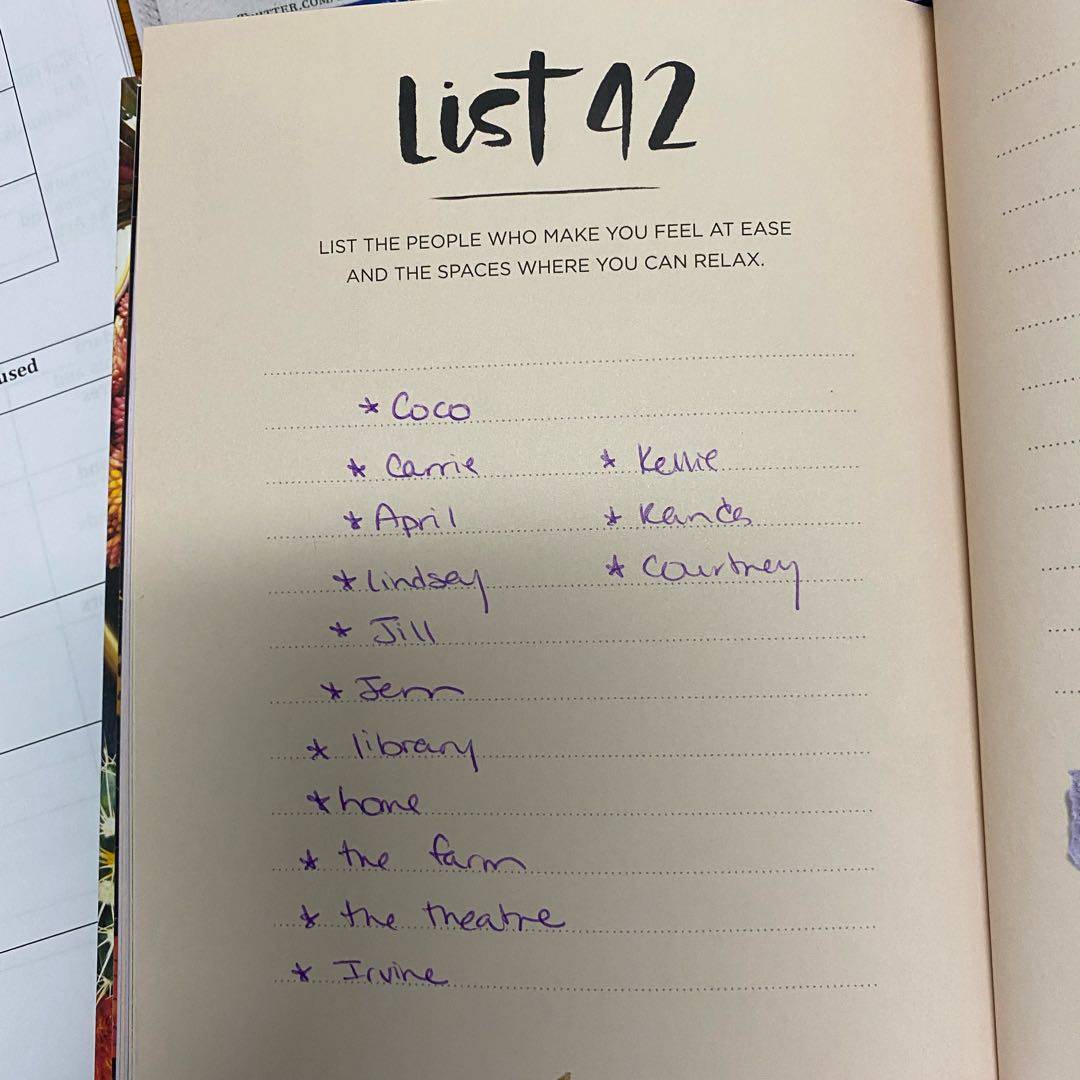 TWITTER.COM/
used
List 42
LIST THE PEOPLE WHO MAKE YOU FEEL AT EASE
AND THE SPACES WHERE YOU CAN RELAX.
* Coco
* Carrie * Kellie
* April
* Lindsey * Courtney
* Jill
* Jenn
* library
* home
* the farm
* the theatre
* Irvine